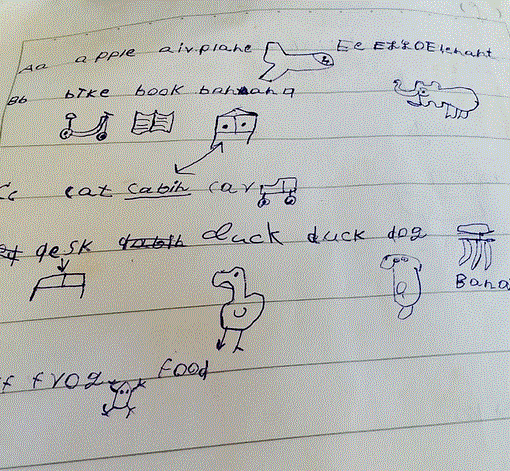 Aa apple airplane Ee Elenant
Bb bike book banana
Cc cat cabin car
desk duck duck dog
Bana
f frog food